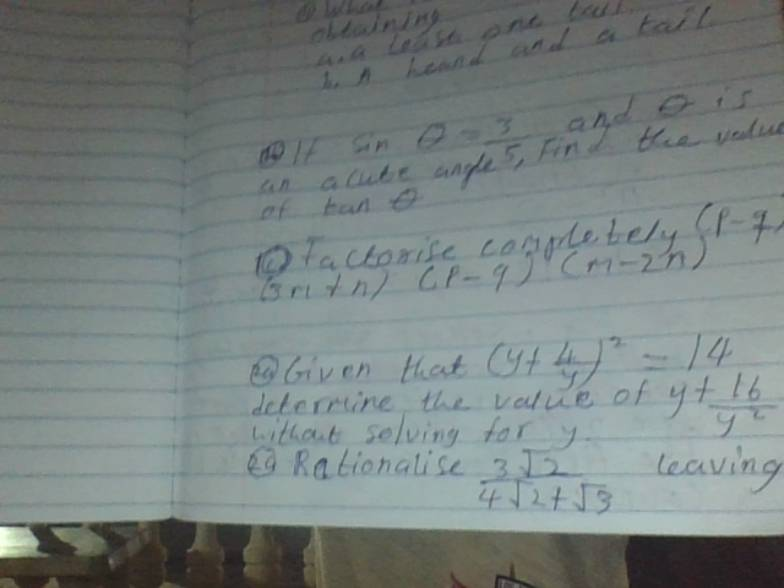 What
obtaining
a. a lease one tail
b. A heand and a tail
(b) If sin θ = 3/5 and θ is
an acute angle, Find the value
of tan θ
(c) Factorise completely (P-q)
(3m+n) (P-q) (m-2n)
Given that (y+4/y)² = 14
determine the value of y+16/y²
without solving for y.
Rationalise 3√2/4√2+√3 leaving